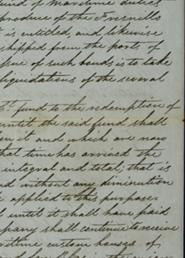 und of Maritime duties
produce of the Fresnillo
is entitled, and likewise
shipped from the ports of
sue of such bonds is to take
liquidations of the several
fund to the redemption of
until the said fund shall
on it and which are now
that time has arrived the
integral and total, that is
d without any diminution
e applied to the purposes
until it shall have paid
pany shall continue to receive
ritime custom houses of